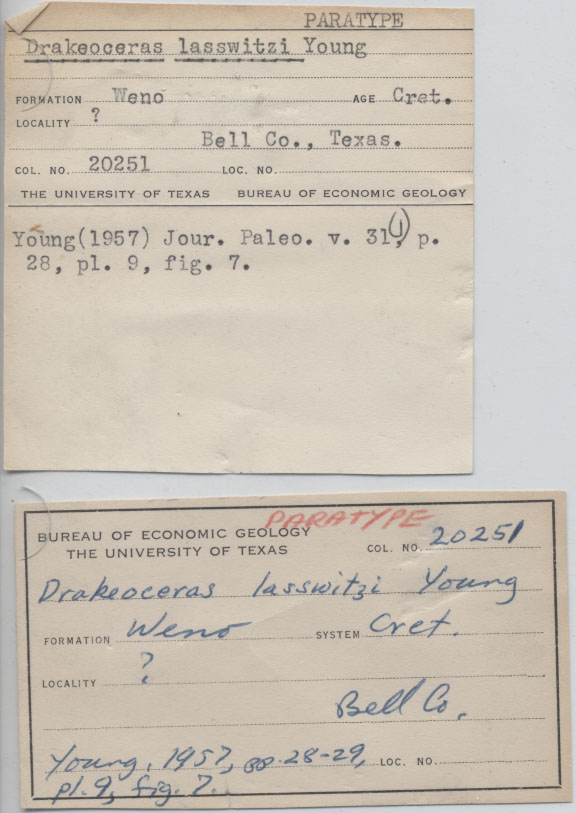 PARATYPE
Drakeoceras lasswitzi Young
FORMATION Weno AGE Cret.
LOCALITY ?
Bell Co., Texas.
COL. NO. 20251 LOC. NO.
THE UNIVERSITY OF TEXAS BUREAU OF ECONOMIC GEOLOGY
Young(1957) Jour. Paleo. v. 31(1), p.
28, pl. 9, fig. 7.
PARATYPE
BUREAU OF ECONOMIC GEOLOGY
THE UNIVERSITY OF TEXAS COL. NO. 20251
Drakeoceras lasswitzi Young
FORMATION Weno SYSTEM Cret.
LOCALITY ?
Bell Co.
Young, 1957, pp. 28-29, LOC. NO.
pl. 9, fig. 7.